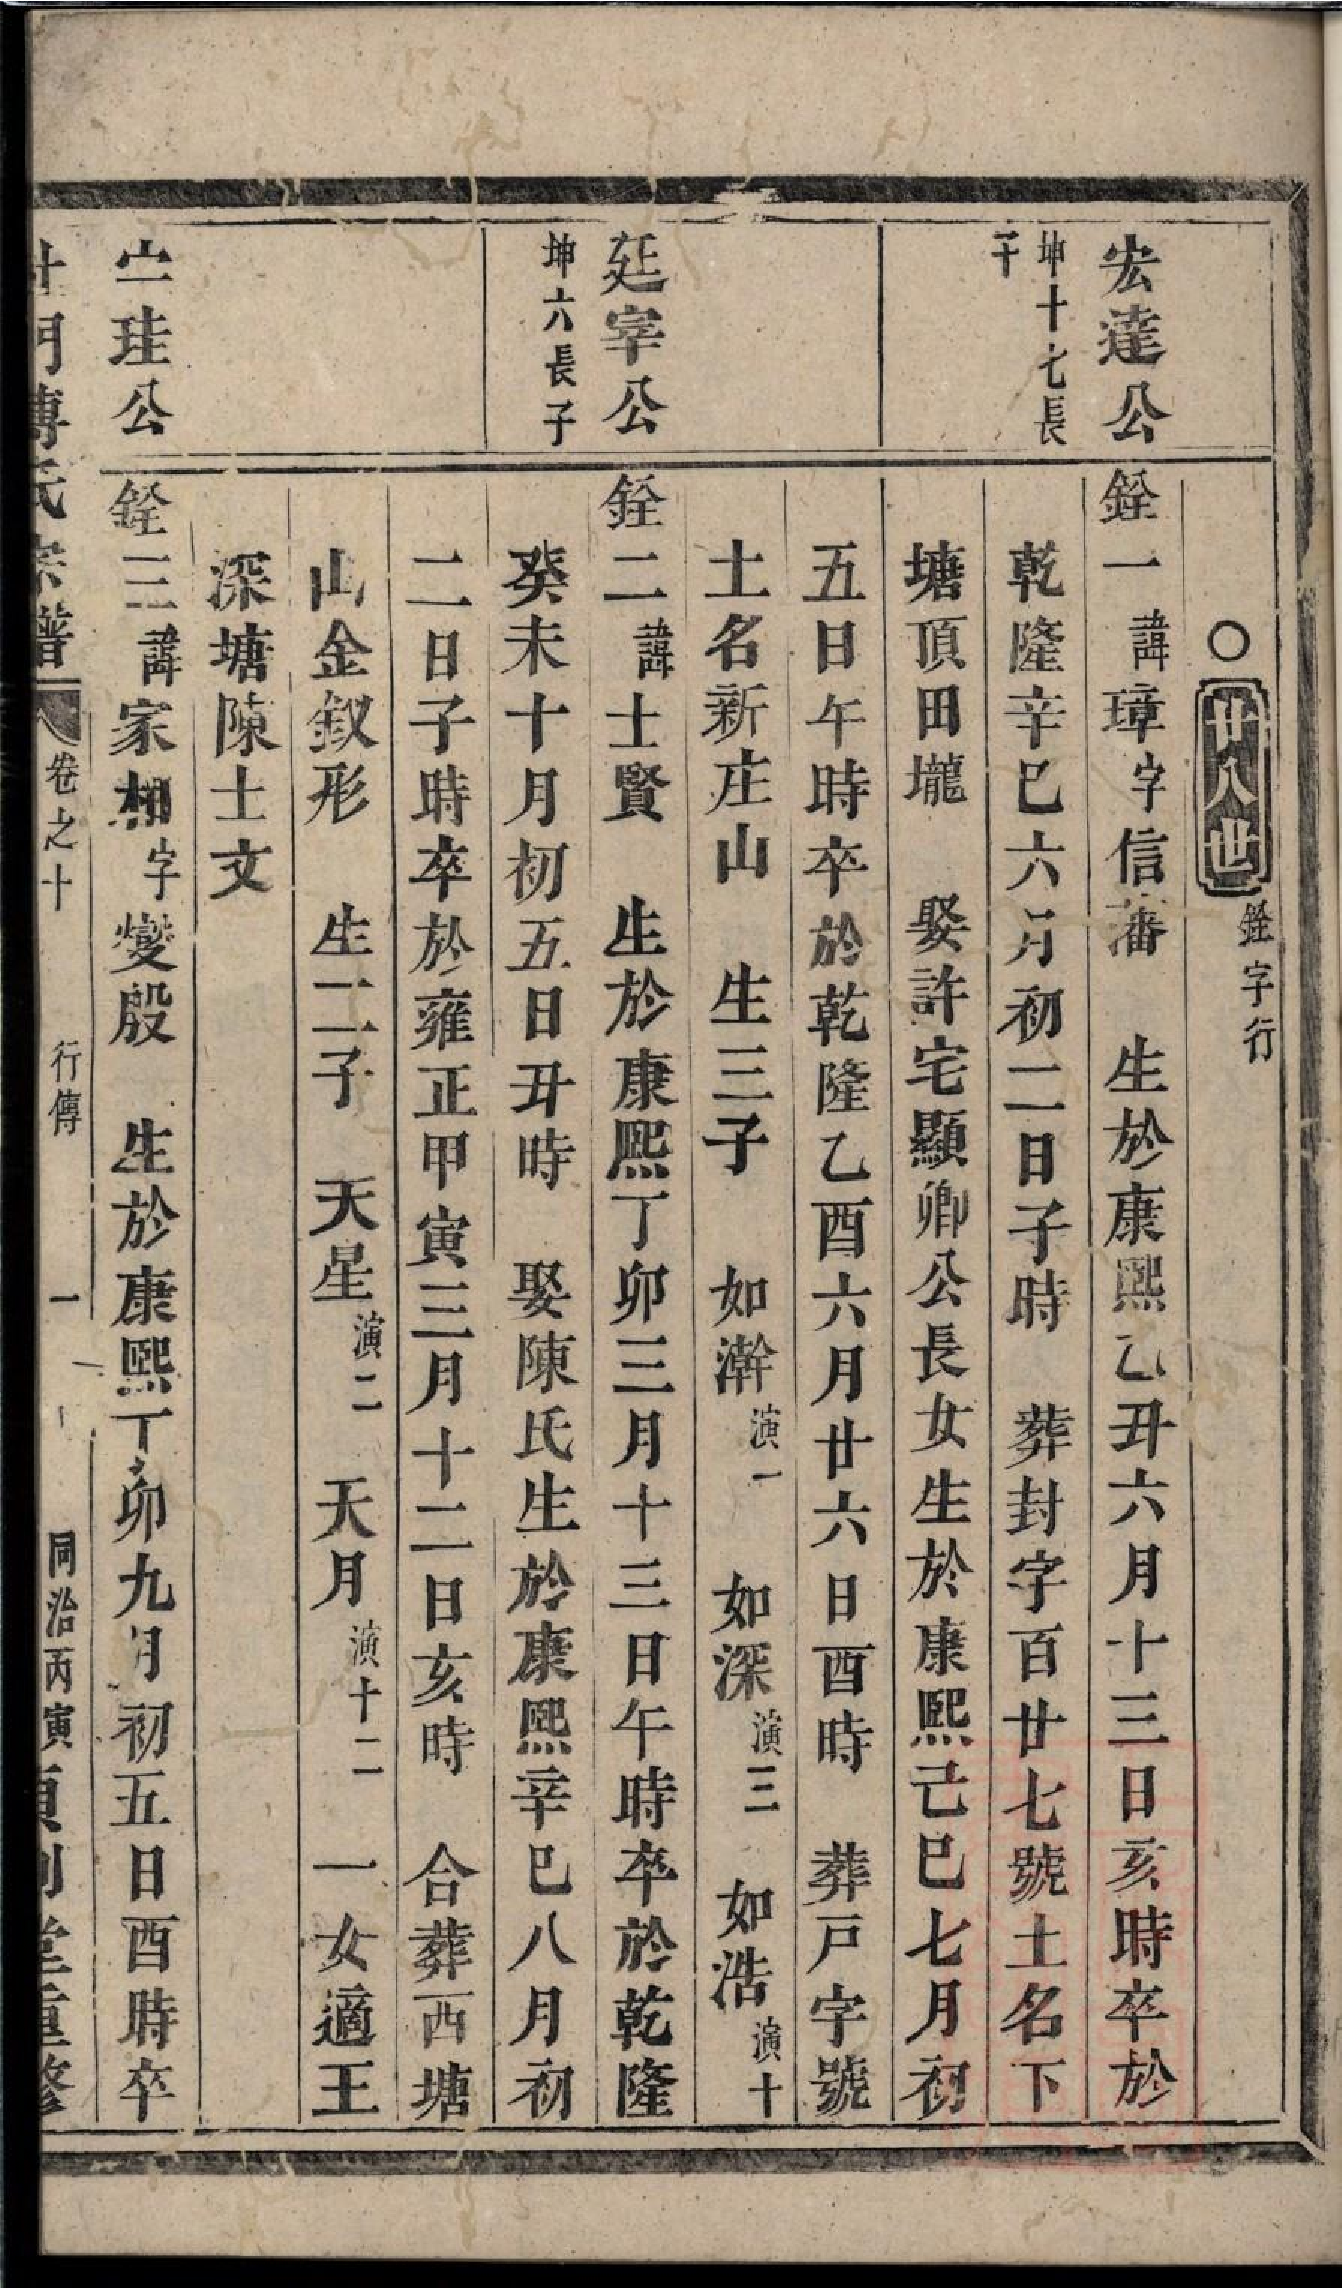 ○廿八世 銓字行
宏達公 坤十七長子
銓一諱璋字信藩 生於康熙乙丑六月十三日亥時卒於
乾隆辛巳六月初二日子時 葬封字百廿七號土名下
塘頂田壠 娶許宅顯卿公長女生於康熙己巳七月初
五日午時卒於乾隆乙酉六月廿六日酉時 葬戸字號
土名新庄山 生三子 如澣演一 如深演三 如浩演十
廷宰公 坤六長子
銓二諱士賢 生於康熙丁卯三月十三日午時卒於乾隆
癸未十月初五日丑時 娶陳氏生於康熙辛巳八月初
二日子時卒於雍正甲寅三月十二日亥時 合葬西塘
山金釵形 生二子 天星演二 天月演十二 一女適王
深塘陳士文
珪公
銓三諱家相字燮殷 生於康熙丁卯九月初五日酉時卒
門傅氏宗譜 卷之十 行傳 一 同治丙寅 堂重修